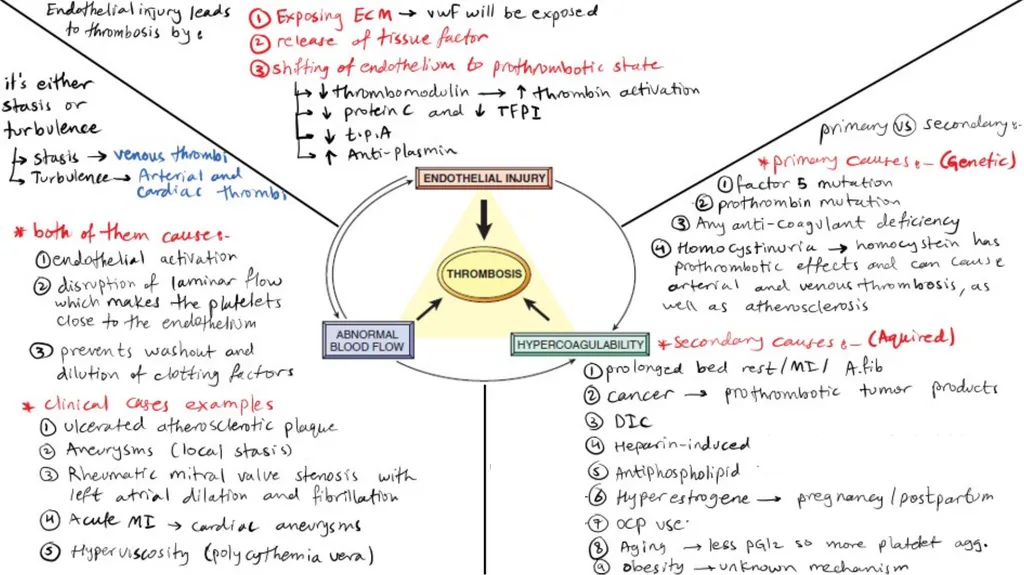 Endothelial injury leads
to thrombosis by :
① Exposing ECM → vWF will be exposed
② release of tissue factor
③ shifting of endothelium to prothrombotic state
↳ ↓ thrombomodulin → ↑ thrombin activation
↳ ↓ protein C and ↓ TFPI
↳ ↓ t.p.A
↳ ↑ Anti-plasmin
it's either
stasis or
turbulence
↳ stasis → venous thrombi
↳ Turbulence → Arterial and
cardiac thrombi
* both of them causes:-
① endothelial activation
② disruption of laminar flow
which makes the platelets
close to the endothelium
③ prevents washout and
dilution of clotting factors
* clinical cases examples
① ulcerated atherosclerotic plaque
② Aneurysms (local stasis)
③ Rheumatic mitral valve stenosis with
left atrial dilation and fibrillation
④ Acute MI → cardiac aneurysms
⑤ Hyperviscosity (polycythemia vera)
ENDOTHELIAL INJURY
THROMBOSIS
ABNORMAL
BLOOD FLOW
HYPERCOAGULABILITY
primary vs secondary:-
* primary causes:- (Genetic)
① factor 5 mutation
② prothrombin mutation
③ Any anti-coagulant deficiency
④ Homocystinuria → homocystein has
prothrombotic effects and can cause
arterial and venous thrombosis, as
well as atherosclerosis
* Secondary causes:- (Aquired)
① prolonged bed rest/MI/ A.fib
② cancer → prothrombotic tumor products
③ DIC
④ Heparin-induced
⑤ Antiphospholipid
⑥ Hyperestrogene → pregnancy/postpartum
⑦ OCP use
⑧ Aging → less PGI2 so more platelet agg.
⑨ obesity → unknown mechanism